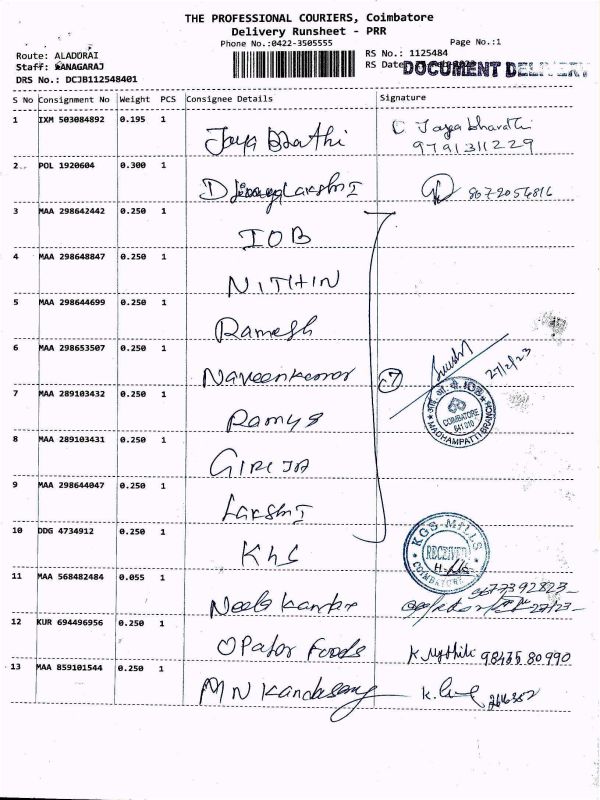 THE PROFESSIONAL COURIERS, Coimbatore
Delivery Runsheet - PRR
Phone No.:0422-3505555
Page No.:1
Route: ALADORAI
RS No.: 1125484
Staff: KANAGARAJ
RS Date
DOCUMENT DELIVERY
DRS No.: DCJB112548401
S No Consignment No Weight PCS Consignee Details Signature
1 IXM 503084892 0.195 1 Jaya Bharathi C Jayabharathi
9791311229
2 POL 1920604 0.300 1 D LakshmI 8072054816
3 MAA 298642442 0.250 1 IOB
4 MAA 298648847 0.250 1 NITHIN
5 MAA 298644699 0.250 1 Ramesh
6 MAA 298653507 0.250 1 Naveenkumar 7 27/2/23
आई. ओ. बी. IOB
COIMBATORE
641 010
MADHAMPATTI BRANCH
7 MAA 289103432 0.250 1 Ramya
8 MAA 289103431 0.250 1 GIRIJA
9 MAA 298644047 0.250 1 LakshmI
10 DDG 4734912 0.250 1 KGS
KGS-MILLS
RECEIVED
COIMBATORE
11 MAA 568482484 0.055 1
12 KUR 694496956 0.250 1 Opator Foods K Mythili 98435 80990
13 MAA 859101544 0.250 1 M N Kandasamy K.